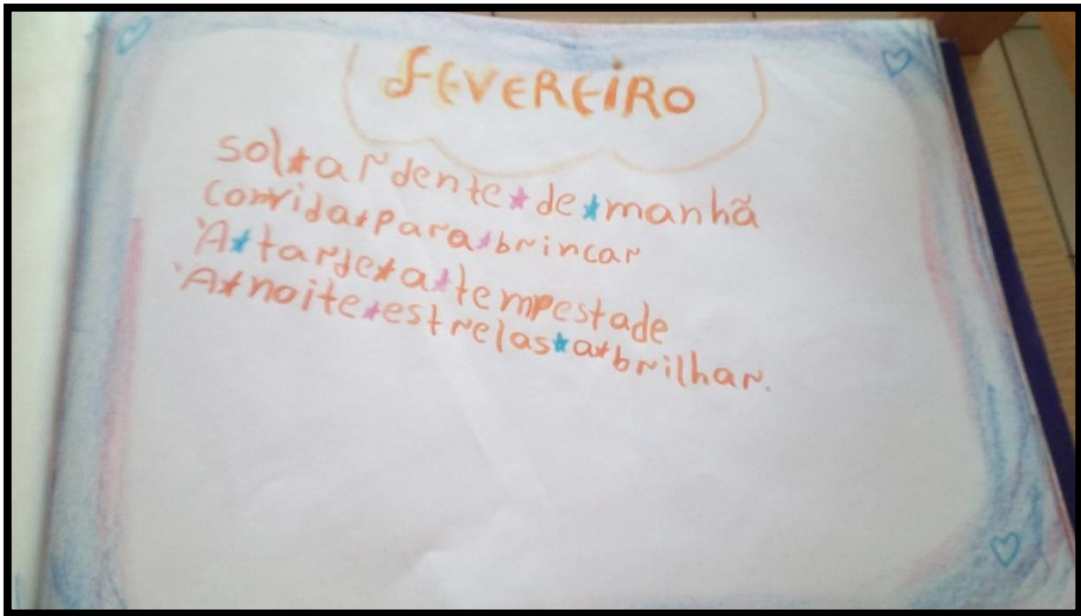 FEVEREIRO
sol★ardente★de★manhã
convida★para★brincar
À★tarde★a★tempestade
À★noite★estrelas★a★brilhar.